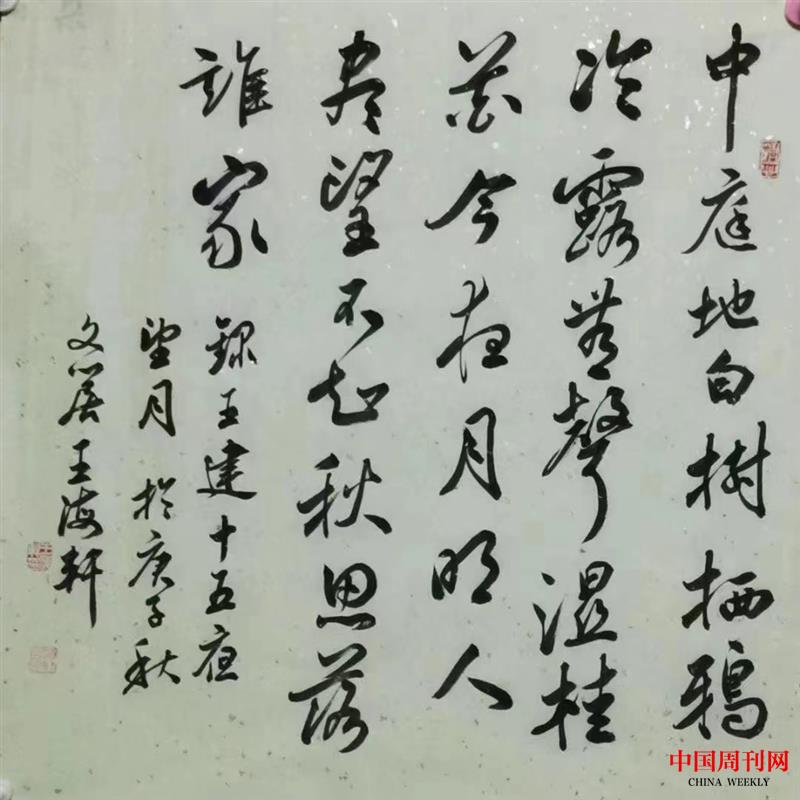 中庭地白樹栖鴉
冷露無聲湿桂
花今夜月明人
盡望不知秋思落
誰家
錄王建十五夜
望月 於庚子秋
文心居王海軒
中国周刊网
CHINA WEEKLY